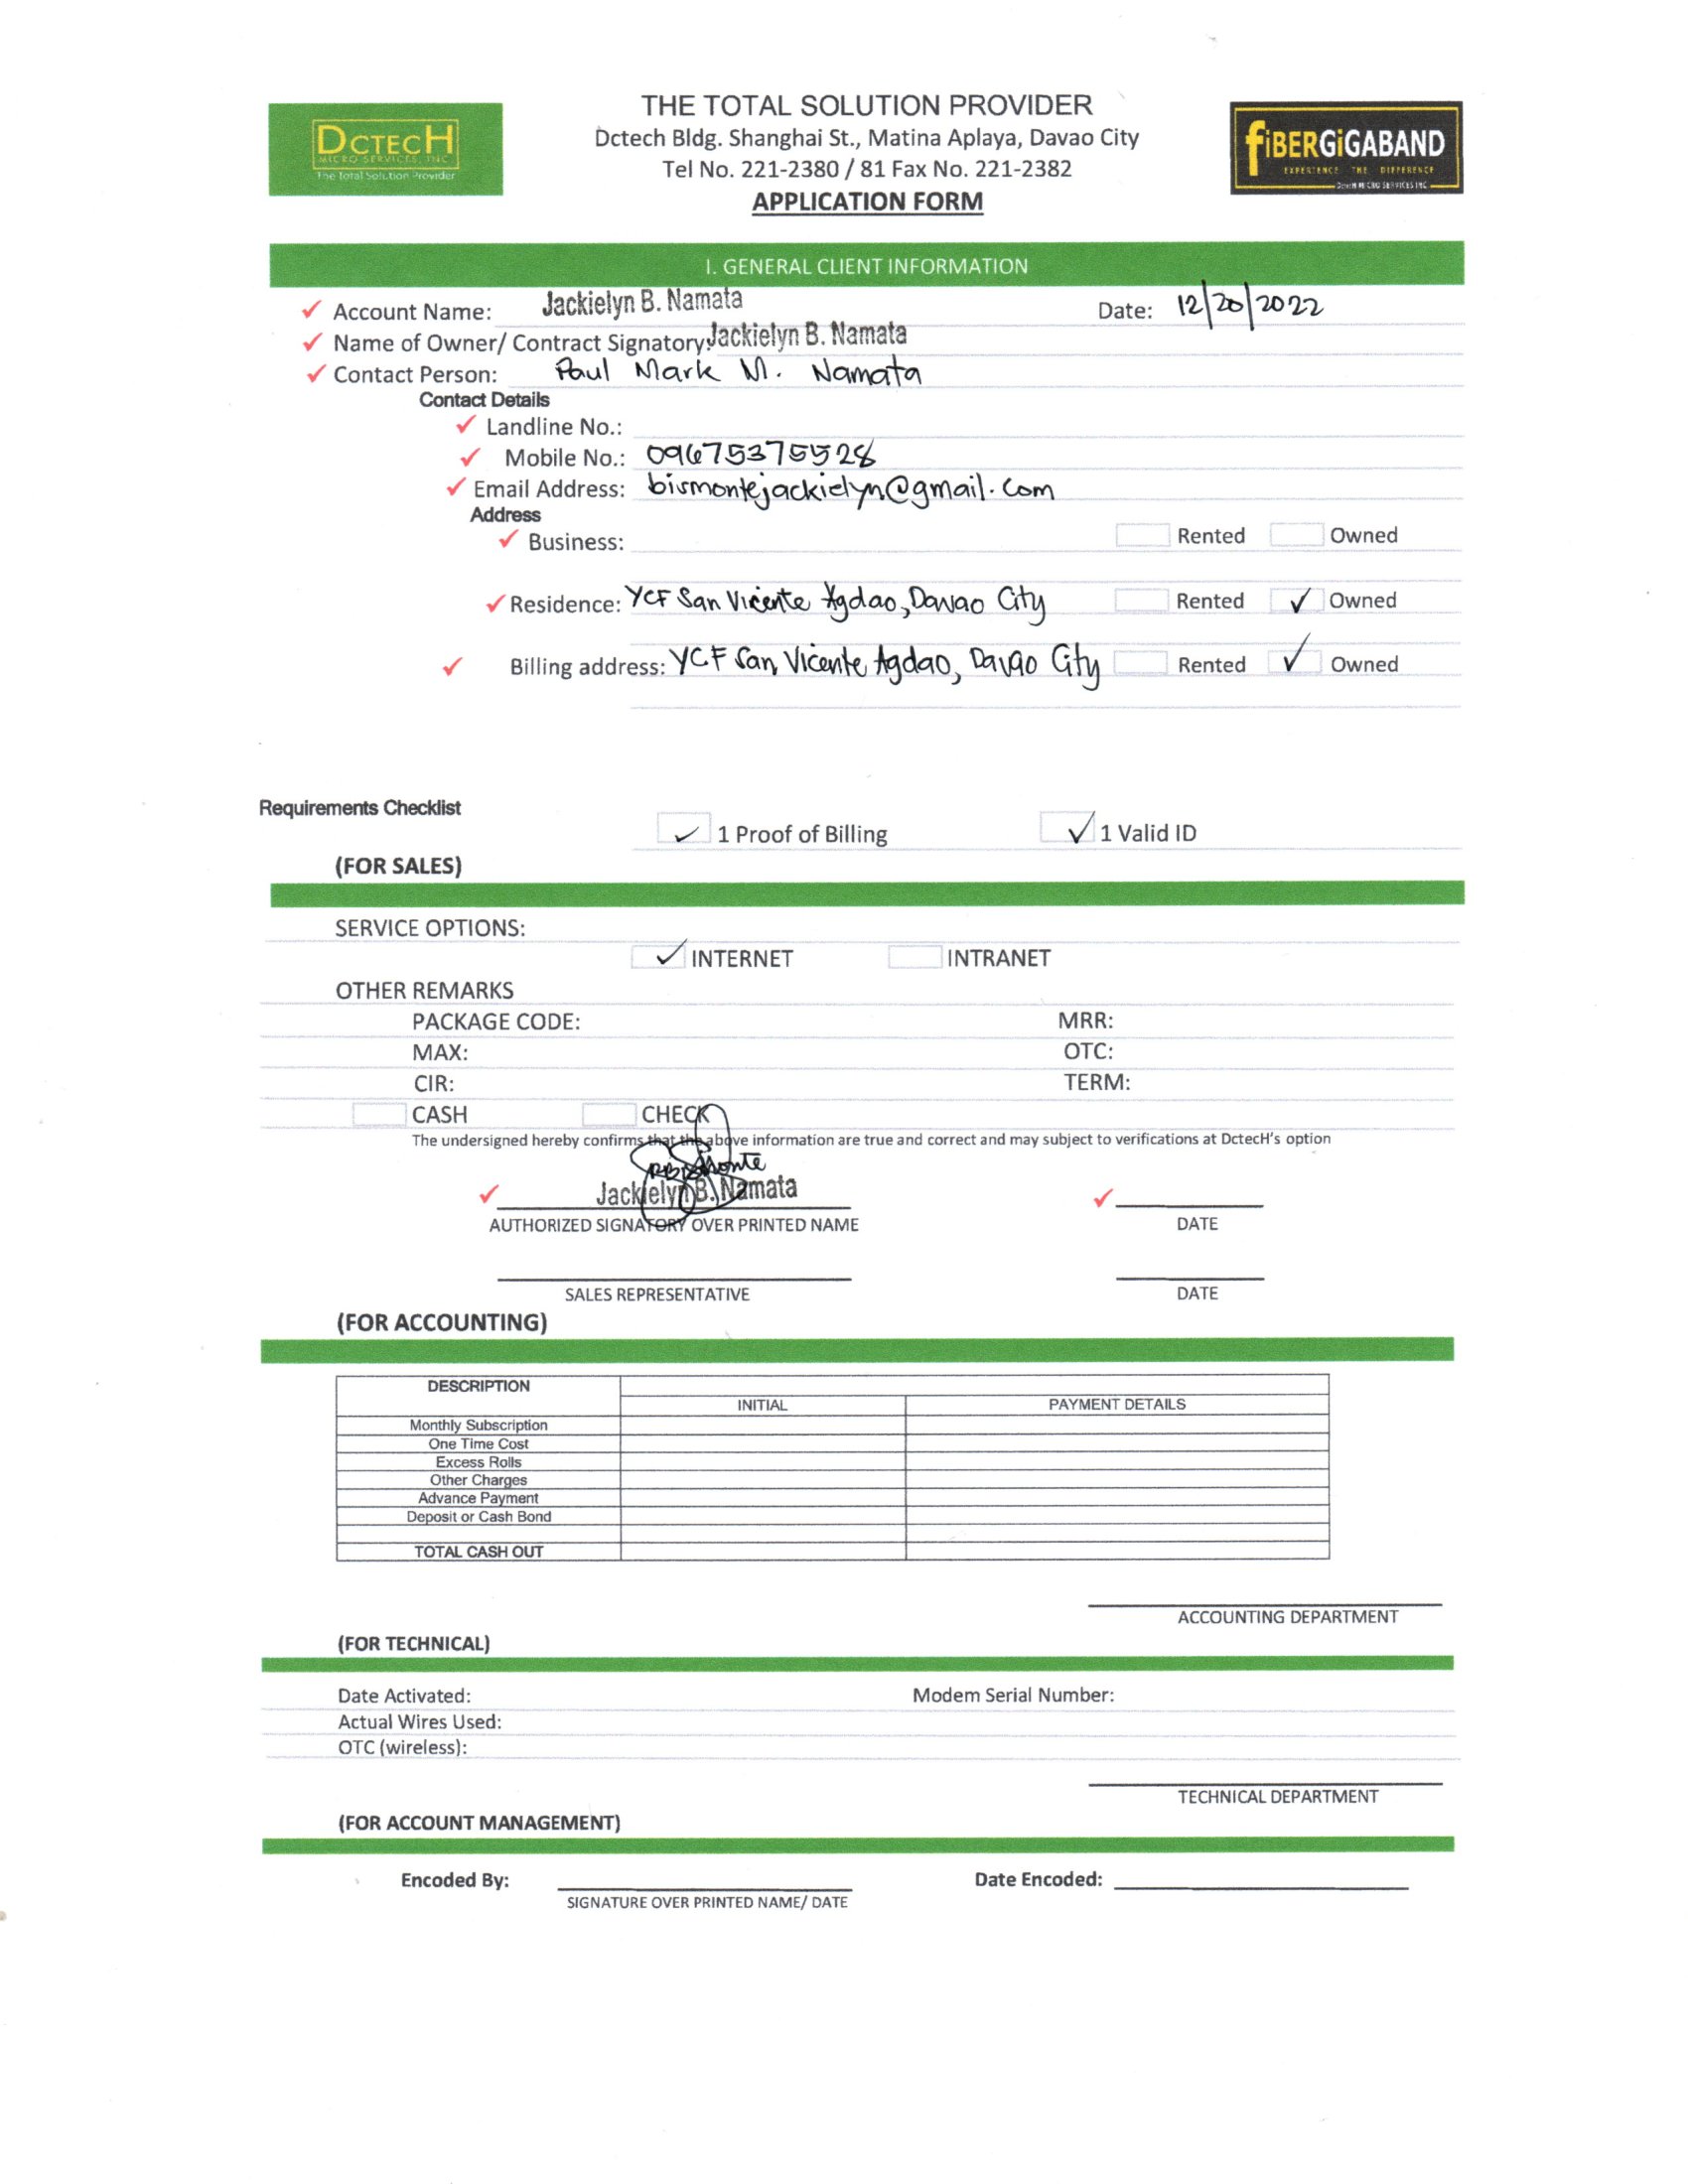 DCTECH
MICRO SERVICES, INC
The Total Solution Provider
THE TOTAL SOLUTION PROVIDER
Dctech Bldg. Shanghai St., Matina Aplaya, Davao City
Tel No. 221-2380 / 81 Fax No. 221-2382
APPLICATION FORM
fiBERGiGABAND
EXPERIENCE THE DIFFERENCE
DctecH MICRO SERVICES INC
I. GENERAL CLIENT INFORMATION
✓ Account Name: Jackielyn B. Namata Date: 12/20/2022
✓ Name of Owner/ Contract Signatory: Jackielyn B. Namata
✓ Contact Person: Paul Mark M. Namata
Contact Details
✓ Landline No.:
✓ Mobile No.: 09675375528
✓ Email Address: bismontejackielyn@gmail.com
Address
✓ Business: Rented Owned
✓ Residence: YCF San Vicente Agdao, Davao City Rented ✓ Owned
✓ Billing address: YCF San Vicente Agdao, Davao City Rented ✓ Owned
Requirements Checklist
✓ 1 Proof of Billing ✓ 1 Valid ID
(FOR SALES)
SERVICE OPTIONS:
✓ INTERNET INTRANET
OTHER REMARKS
PACKAGE CODE: MRR:
MAX: OTC:
CIR: TERM:
CASH CHECK
The undersigned hereby confirms that the above information are true and correct and may subject to verifications at DctecH's option
✓ Jackielyn B. Namata ✓
AUTHORIZED SIGNATORY OVER PRINTED NAME DATE
SALES REPRESENTATIVE DATE
(FOR ACCOUNTING)
DESCRIPTION
INITIAL PAYMENT DETAILS
Monthly Subscription
One Time Cost
Excess Rolls
Other Charges
Advance Payment
Deposit or Cash Bond
TOTAL CASH OUT
ACCOUNTING DEPARTMENT
(FOR TECHNICAL)
Date Activated: Modem Serial Number:
Actual Wires Used:
OTC (wireless):
TECHNICAL DEPARTMENT
(FOR ACCOUNT MANAGEMENT)
Encoded By: Date Encoded:
SIGNATURE OVER PRINTED NAME/ DATE